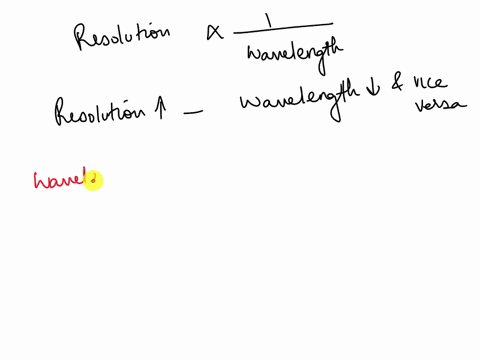 Resolution ∝ 1
wavelength
Resolution ↑ — wavelength ↓ & vice
versa
wavel